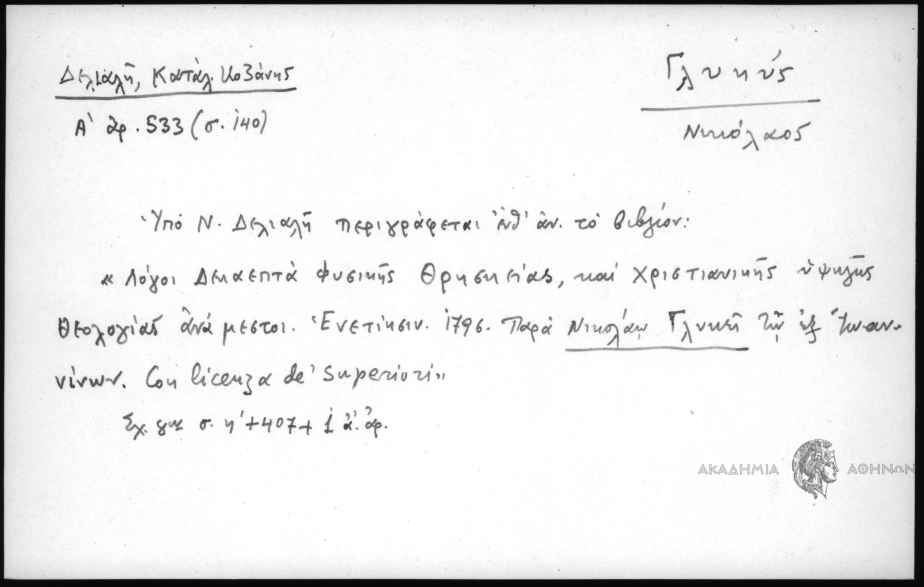 Δελιαλῆ, Κατάλ. Κοζάνης
Α' ἀρ. 533 (σ. 140)
Γλυκύς
Νικόλαος
Ὑπό Ν. Δελιαλῆ περιγράφεται ἐνθ' ἀν. τό βιβλίον:
« Λόγοι Δεκαεπτά Φυσικῆς Θρησκείας, καί Χριστιανικῆς ὑψηλῆς
Θεολογίας ἀνάμεστοι. Ἐνετίησιν. 1796. Παρά Νικολάῳ Γλυκεῖ τῷ ἐξ Ἰωαν-
νίνων. Con licenza de' Superiori»
Σχ. 8ον σ. η' + 407 + 1 ἀ. ἀρ.
ΑΚΑΔΗΜΙΑ ΑΘΗΝΩΝ